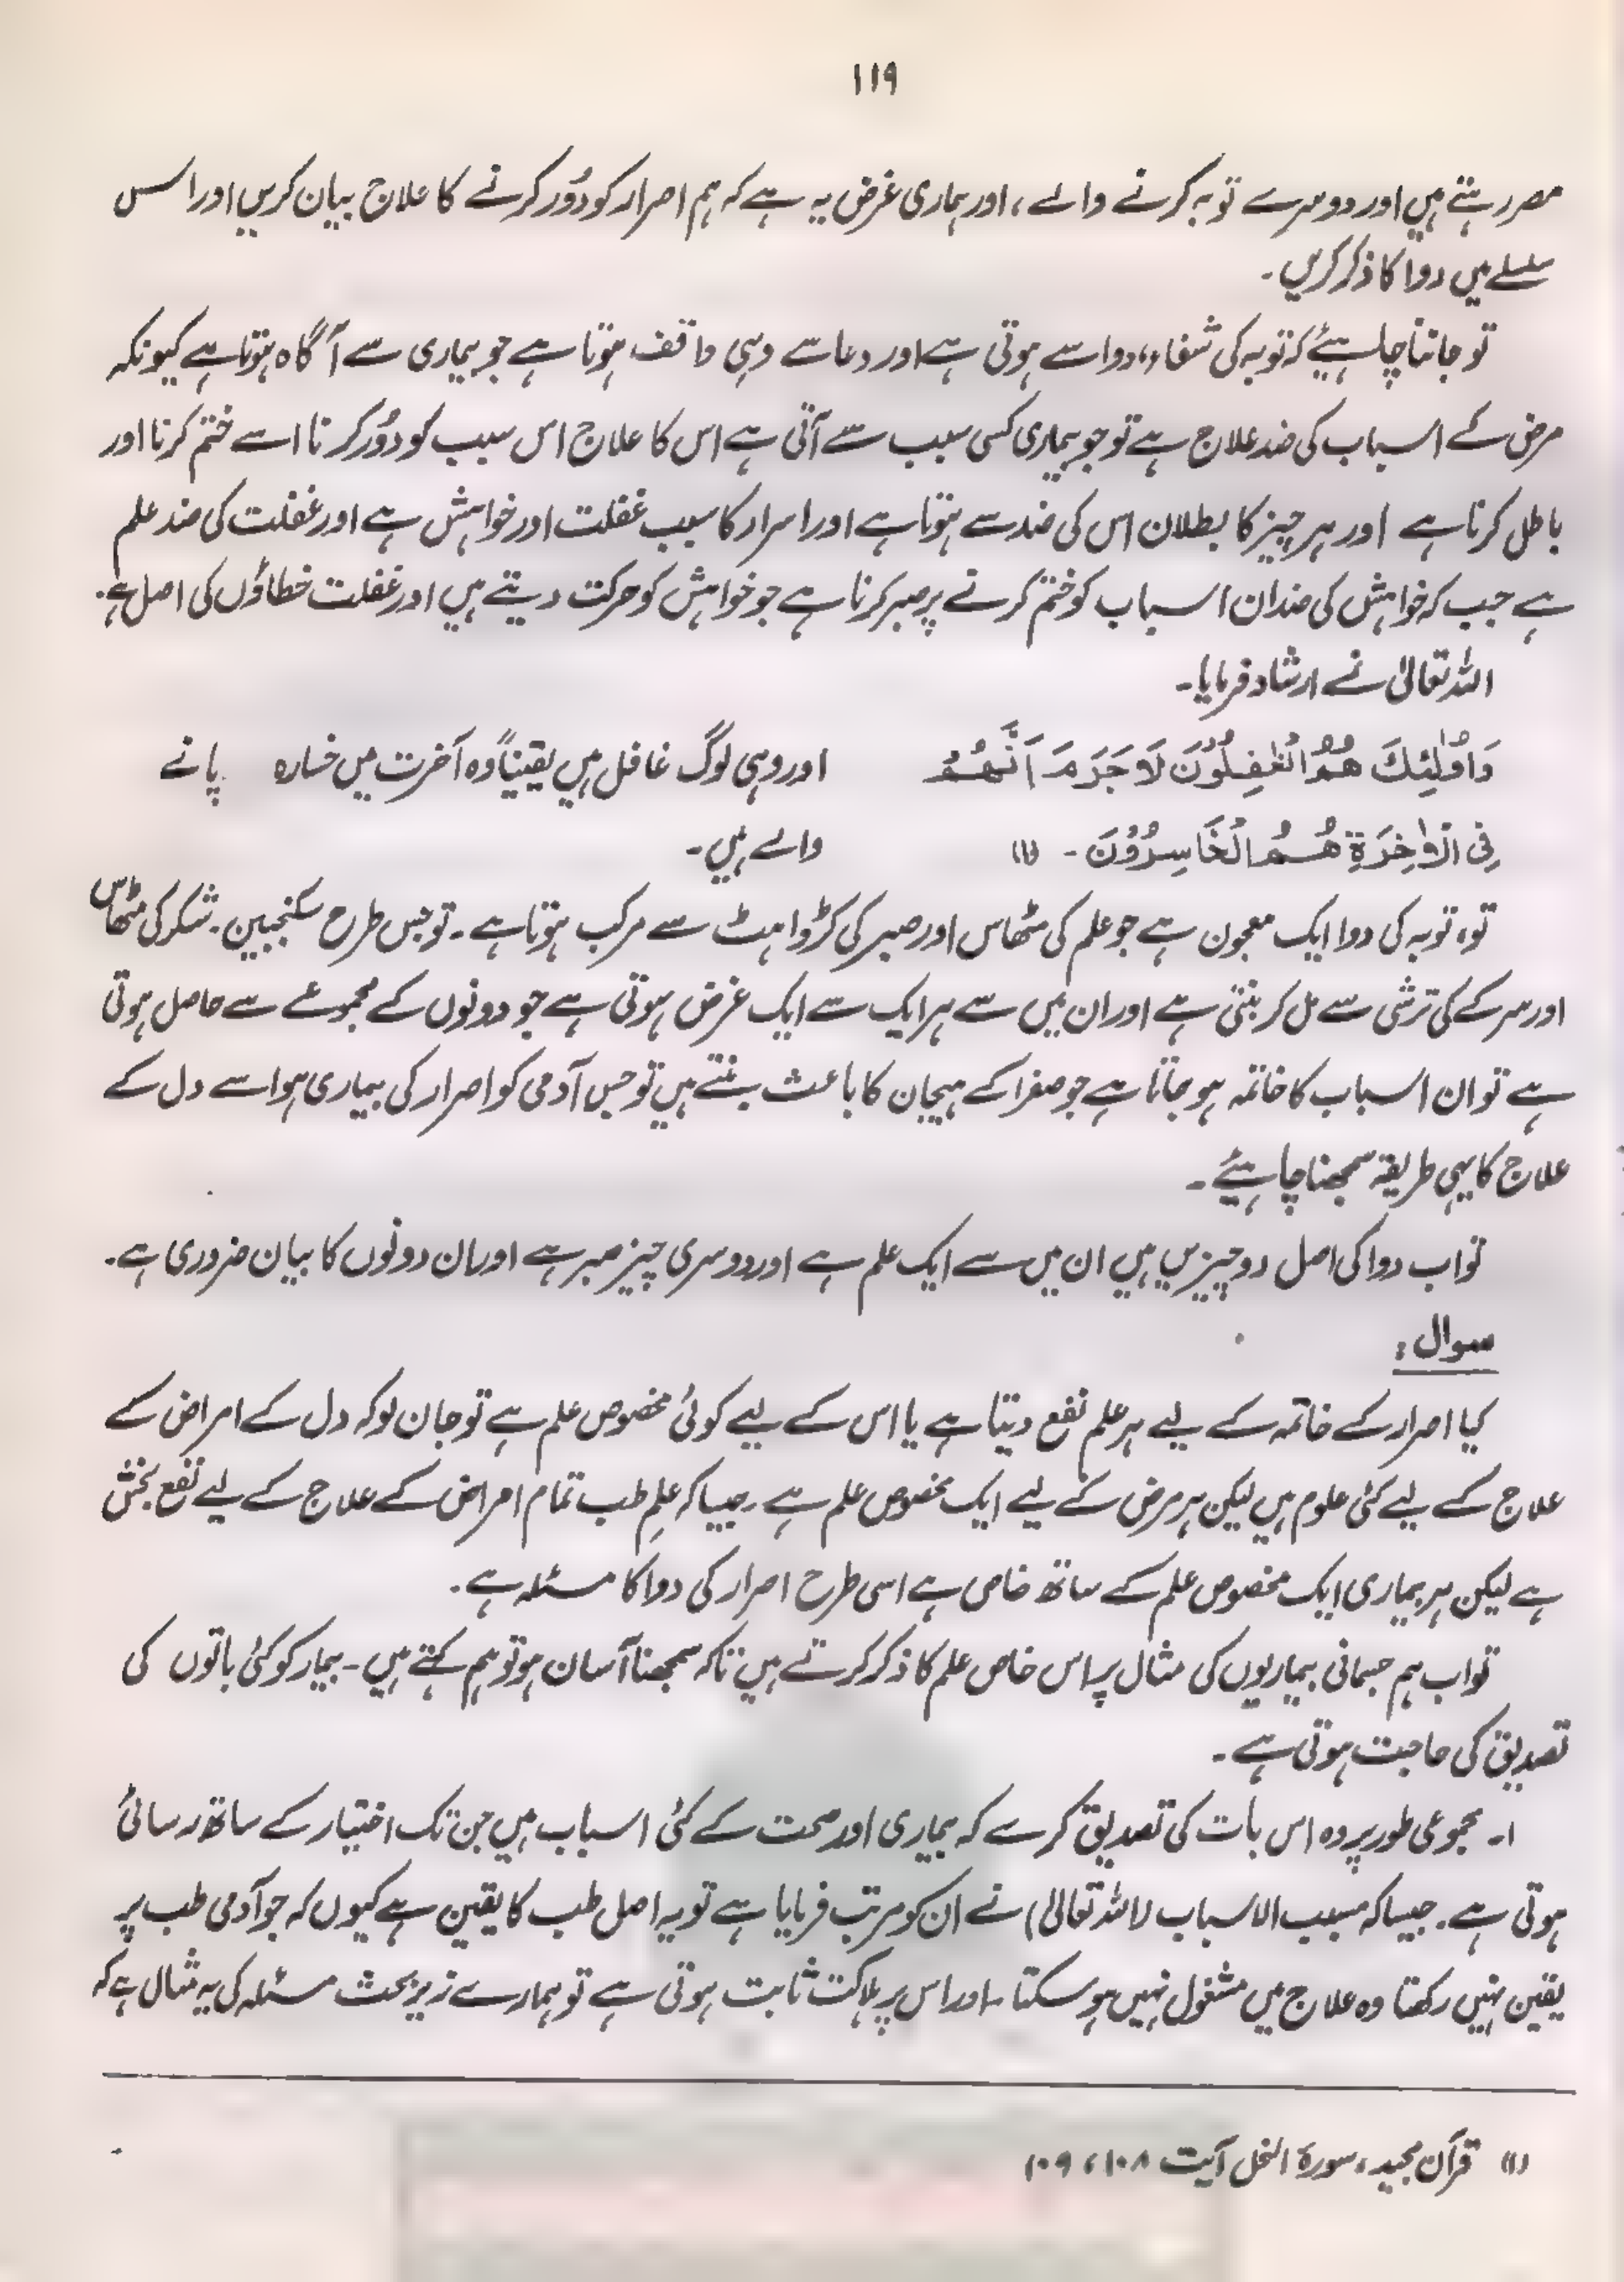 ۱۱۹
مصر رہتے ہیں اور دوسرے توبہ کرنے والے ، اور ہماری غرض یہ ہے کہ ہم اصرار کو دُور کرنے کا علاج بیان کریں اور اسس
سلسلے میں دوا کا ذکر کریں ۔
تو جاننا چاہیئے کہ توبہ کی شفاء، دوا سے ہوتی ہے اور دعا سے وہی واقف ہوتا ہے جو بیماری سے آگاہ ہوتا ہے کیونکہ
مرض کے اسباب کی ضد علاج ہے تو جو بیماری کسی سبب سے آتی ہے اس کا علاج اس سبب کو دُور کرنا اسے ختم کرنا اور
باطل کرنا ہے اور ہر چیز کا بطلان اس کی ضد سے ہوتا ہے اور اسرار کا سبب غفلت اور خواہش ہے اور غفلت کی ضد علم
ہے جب کہ خواہش کی ضد ان اسباب کو ختم کرنے پر صبر کرنا ہے جو خواہش کو حرکت دیتے ہیں اور غفلت خطاؤں کی اصل ہے ۔
اللہ تعالیٰ نے ارشاد فرمایا ۔
وَاُولٰٓئِكَ هُمُ الْغٰفِلُوْنَ لَا جَرَمَ اَنَّهُمْ اور وہی لوگ غافل ہیں یقیناً وہ آخرت میں خسارہ پانے
فِی الْاٰخِرَةِ هُمُ الْخَاسِرُوْنَ ۔ (۱) والے ہیں ۔
تو، توبہ کی دوا ایک معجون ہے جو علم کی مٹھاس اور صبر کی کڑواہٹ سے مرکب ہوتا ہے ۔ تو جس طرح سکنجبین ۔ شکر کی مٹھاس
اور سرکے کی ترشی سے مل کر بنتی ہے اور ان میں سے ہر ایک سے ایک غرض ہوتی ہے جو دونوں کے مجموعے سے حاصل ہوتی
ہے تو ان اسباب کا خاتمہ ہو جاتا ہے جو صفرا کے ہیجان کا باعث بنتے ہیں تو جس آدمی کو اصرار کی بیماری ہو اسے دل کے
علاج کا یہی طریقہ سمجھنا چاہیئے ۔
تو اب دوا کی اصل دو چیزیں ہیں ان میں سے ایک علم ہے اور دوسری چیز صبر ہے اور ان دونوں کا بیان ضروری ہے ۔
سوال :
کیا اصرار کے خاتمہ کے لیے ہر علم نفع دیتا ہے یا اس کے لیے کوئی مخصوص علم ہے تو جان لو کہ دل کے امراض کے
علاج کے لیے کئی علوم ہیں لیکن ہر مرض کے لیے ایک مخصوص علم ہے ۔ جیسا کہ علمِ طب تمام امراض کے علاج کے لیے نفع بخش
ہے لیکن ہر بیماری ایک مخصوص علم کے ساتھ خاص ہے اسی طرح اصرار کی دوا کا مسئلہ ہے ۔
تو اب ہم جسمانی بیماریوں کی مثال پر اس خاص علم کا ذکر کرتے ہیں تاکہ سمجھنا آسان ہو تو ہم کہتے ہیں ۔ بیمار کو کئی باتوں کی
تصدیق کی حاجت ہوتی ہے ۔
۱۔ مجموعی طور پر وہ اس بات کی تصدیق کرے کہ بیماری اور صحت کے کئی اسباب ہیں جن تک اختیار کے ساتھ رسائی
ہوتی ہے ۔ جیسا کہ مسبب الاسباب (اللہ تعالیٰ) نے ان کو مرتب فرمایا ہے تو یہ اصل طب کا یقین ہے کیوں کہ جو آدمی طب پر
یقین نہیں رکھتا وہ علاج میں مشغول نہیں ہو سکتا ۔ اور اس پر ہلاکت ثابت ہوتی ہے تو ہمارے زیر بحث مسئلہ کی یہ مثال ہے کہ
(۱) قرآن مجید، سورۃ النحل آیت ۱۰۸، ۱۰۹